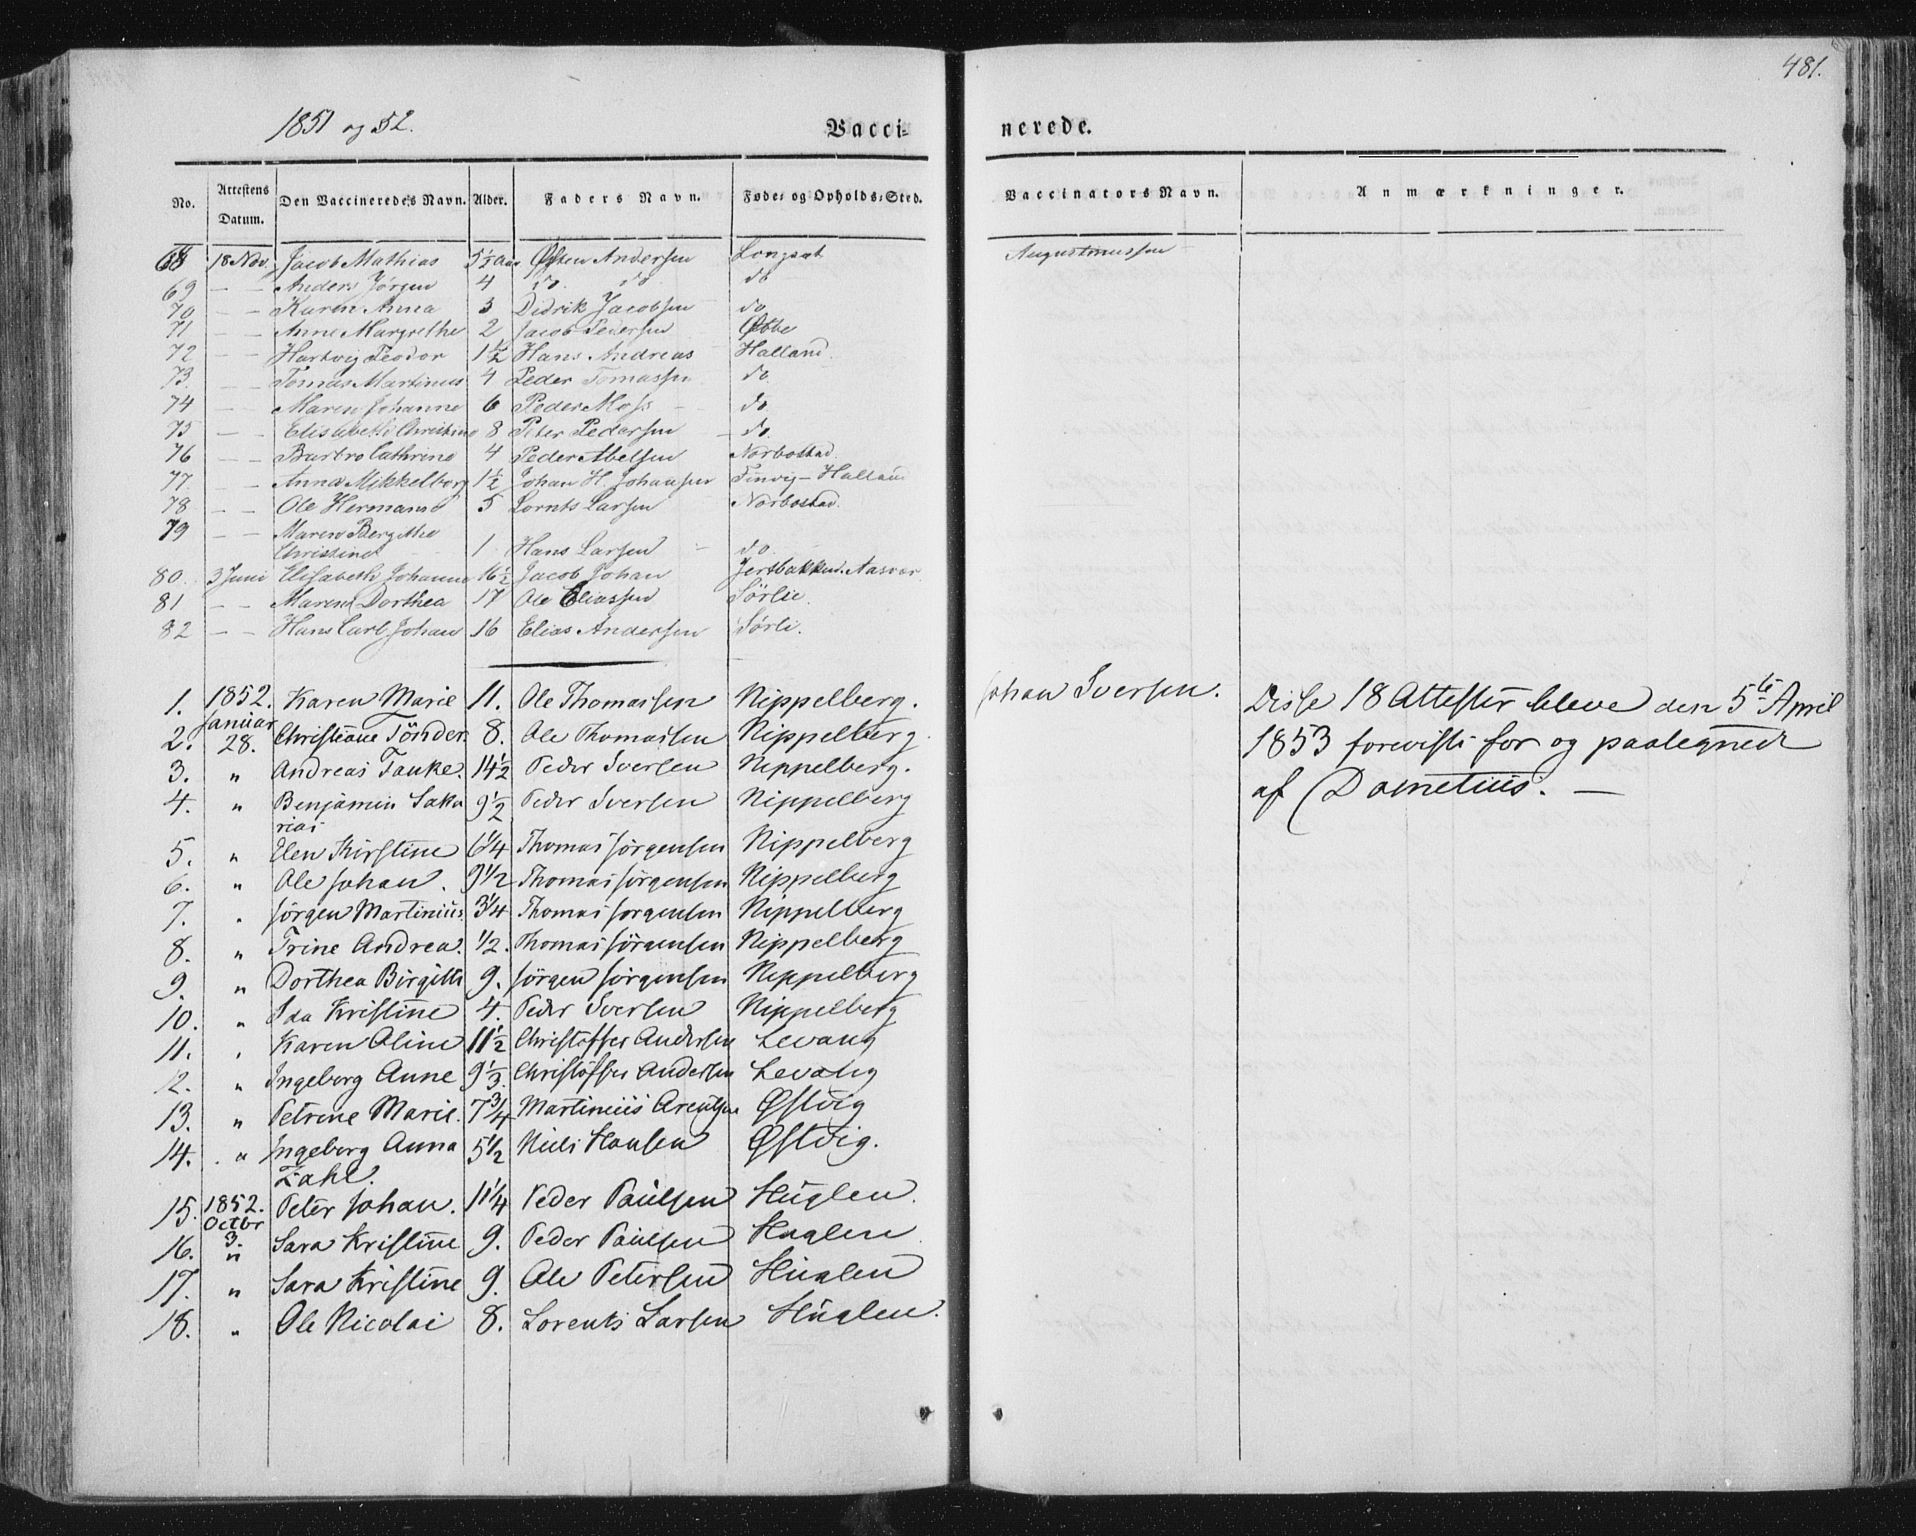 481.
1851 og 52. Vacci- nerede.
No. Attestens Datum. Den Vaccineredes Navn. Alder. Faders Navn. Føde- og Opholds-Sted. Vaccinators Navn. Anmærkninger.
68 18 Nov. Jacob Mathias 5½ Aar Østen Andersen Longset Augustinussen
69 — — Anders Jørgen 4 do. do. do
70 — — Karen Anna 3 Didrik Jacobsen do
71 — — Anne Margrethe 2 Jacob Pedersen
72 — — Hartvig Peodor 1½ Hans Andreas Halland.
73. — — Tomas Martinus 4 Peder Tomassen do
74 — — Maren Johanne 6 Peder Moss do
75 — — Elisabeth Christine 8 Peter Pedersen do.
76 — — Barbro Cathrine 4 Peder Abelsen Norbostad.
77 — — Anna Mikkelborg 1½ Johan H. Johansen Finvig - Halland
78 — — Ole Hermann 5 Lornts Larsen Norbostad.
79 — — Maren Bergithe
Christine 1 Hans Larsen do.
80. 3 Juni Elisabeth Johanne 16½ Jacob Johan Aasvær
81 — — Maren Dorthea 17 Ole Eliassen Sörlie.
82 — — Hans Carl Johan 16 Elias Andersen Sörli.
1. 1852. Karen Marie 11. Ole Thomassen Nippelberg. Johan Iversen. Disse 18 Attester bleve den 5te April
2. Januar 28. Christiane Tönder. 8. Ole Thomassen Nippelberg. 1853 foreviste for og paategned
3. " Andreas Tanke. 14½ Peder Iversen Nippelberg. af Dometius. —
4. " Benjamin Saka 9½ Peder Iversen Nippelberg
rias
5. " Elen Kirstine 6¼ Thomas Jörgensen Nippelberg
6. " Ole Johan. 9½ Thomas Jörgensen Nippelberg
7. " Jörgen Martinius. 3¼ Thomas Jorgensen Nippelberg
8. " Trine Andrea. ½. Thomas Jörgensen Nippelberg
9. " Dorthea Birgitte 9. Jörgen Jörgensen Nippelberg
10. " Ida Kristine 4. Peder Iversen Nippelberg
11. " Karen Oline 11½ Christoffer Andersen Levang
12. " Ingeborg Anne 9⅓. Christöffer Andersen Levang
13. " Petrine Marie. 7¾ Martinius Arentsen Østvig
14. " Ingeborg Anna 5½ Niels Hansen Østvig.
Zahl.
15. 1852. Peter Johan. 11¼ Peder Paulsen Huglen.
16. Octbr 3. " Sara Kristine 9. Peder Paulsen Huglen
17. " Sara Kristine 9. Ole Petersen Huglen
18. " Ole Nicolai 8. Lorents Larsen Huglen.